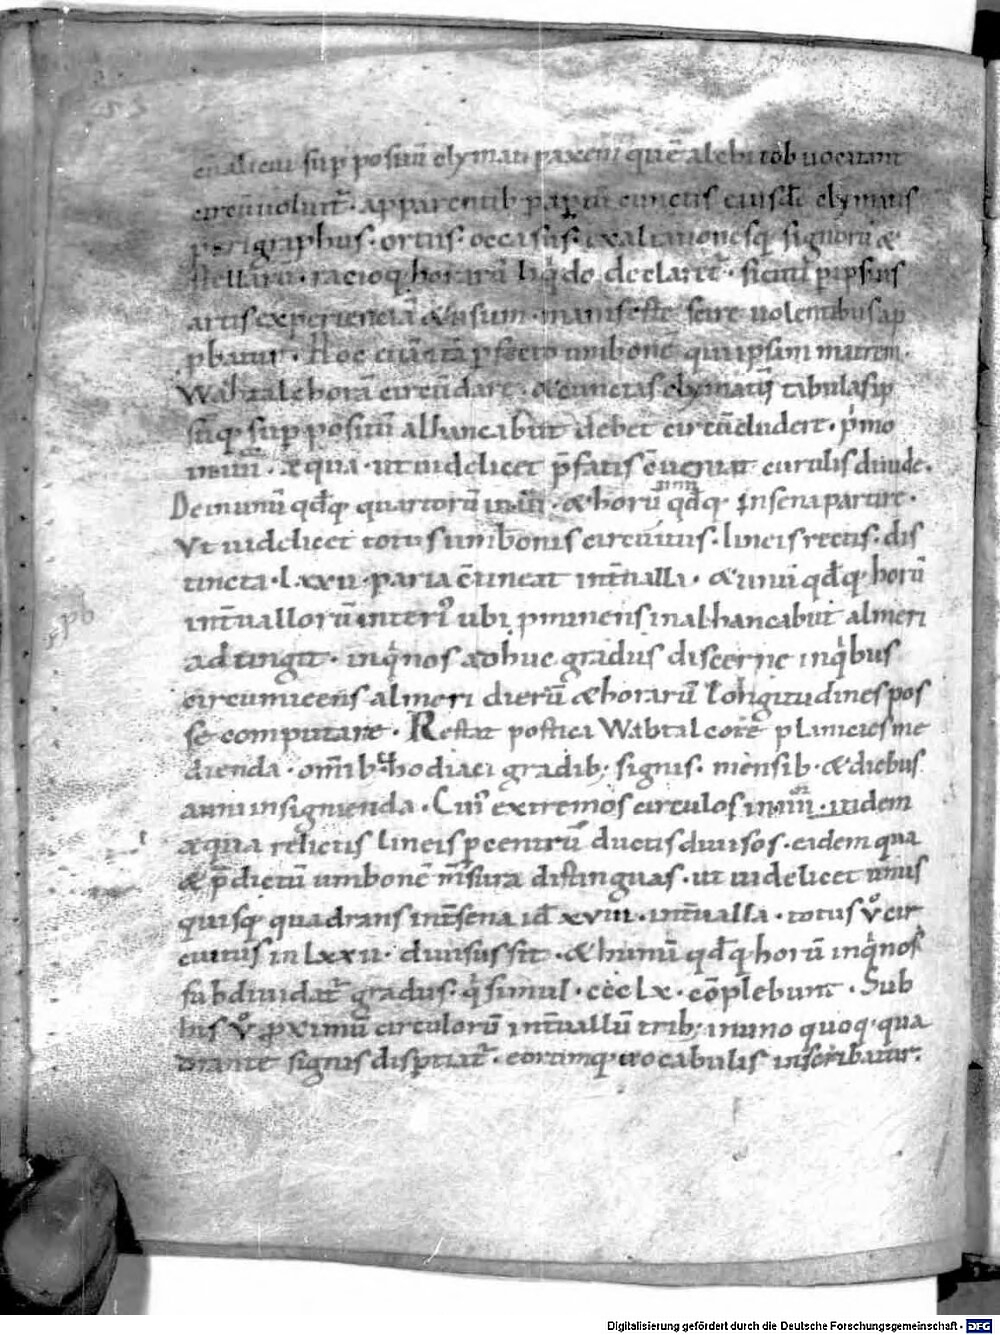 sup positū clymati paxem̄ quē alchitob uocitant
circūuoluit᷑. apparentib paꝑiū cunctis eiusdē clymatis
perigraphus. ortus. occasus. exaltationesq; signorū &
stellarū. racioq; horarū liq̇do declaret᷑. sicuti ꝑipsius
artis experienciā & usum. manifeste scire uolentibus ap
ꝓbatur. Hoc ꝑfecto umbonē qui ipsam matrem.
Wabtalchorā circūdare. & cunctas clymatū tabulas sip
sūq; sup positū alhancabut debet circūcludere. pͥmo
in iiii. æqua. ut uidelicet p̄fatis cōueniat curulis diuide.
Deinunū qd̄q; quartorū in iii. & horū qd̄q; in sena partire.
Vt uidelicet totus umbonis circuitus. lineis rectis. dis
tincta. Lxxii. paria c̄tineat int̄ualla. & unū qd̄q; horū
int̄uallorū interi᷑ ubi ꝓminens in alhancabut almeri
adtingit. inq̇nos adhuc gradus discerne inq̇bus
circumiciens almeri dierū & horarū longitudines pos
se computare. Restat postica Wabtalcore planicies me
dienda. om̄ib; zhodiaci gradib; signis. mensib. & diebus
anni insignienda. Cui᷑ extremos circulos in iiii. itidem
æqua relictis lineis ꝑ centrū ductis diuisos. eidem qua
& p̄dictū umbonē m̄sura distinguas. ut uidelicet unus
quisq; quadrans int̄sena id xviii. int̄ualla. totus ů cir
cuitus in Lxxii. diuisus sit. & hunū qd̄q; horū inq̇nos
subdiuidat᷑ gradus. q̇ simul. ccc Lx. cōplebunt. Sub
his ů ꝓximū circulorū int̄uallū trib; inuno quoq; qua
drante signis disptiat᷑. eorumq; uocabulis inscribatur.
Digitalisierung gefördert durch die Deutsche Forschungsgemeinschaft - DFG